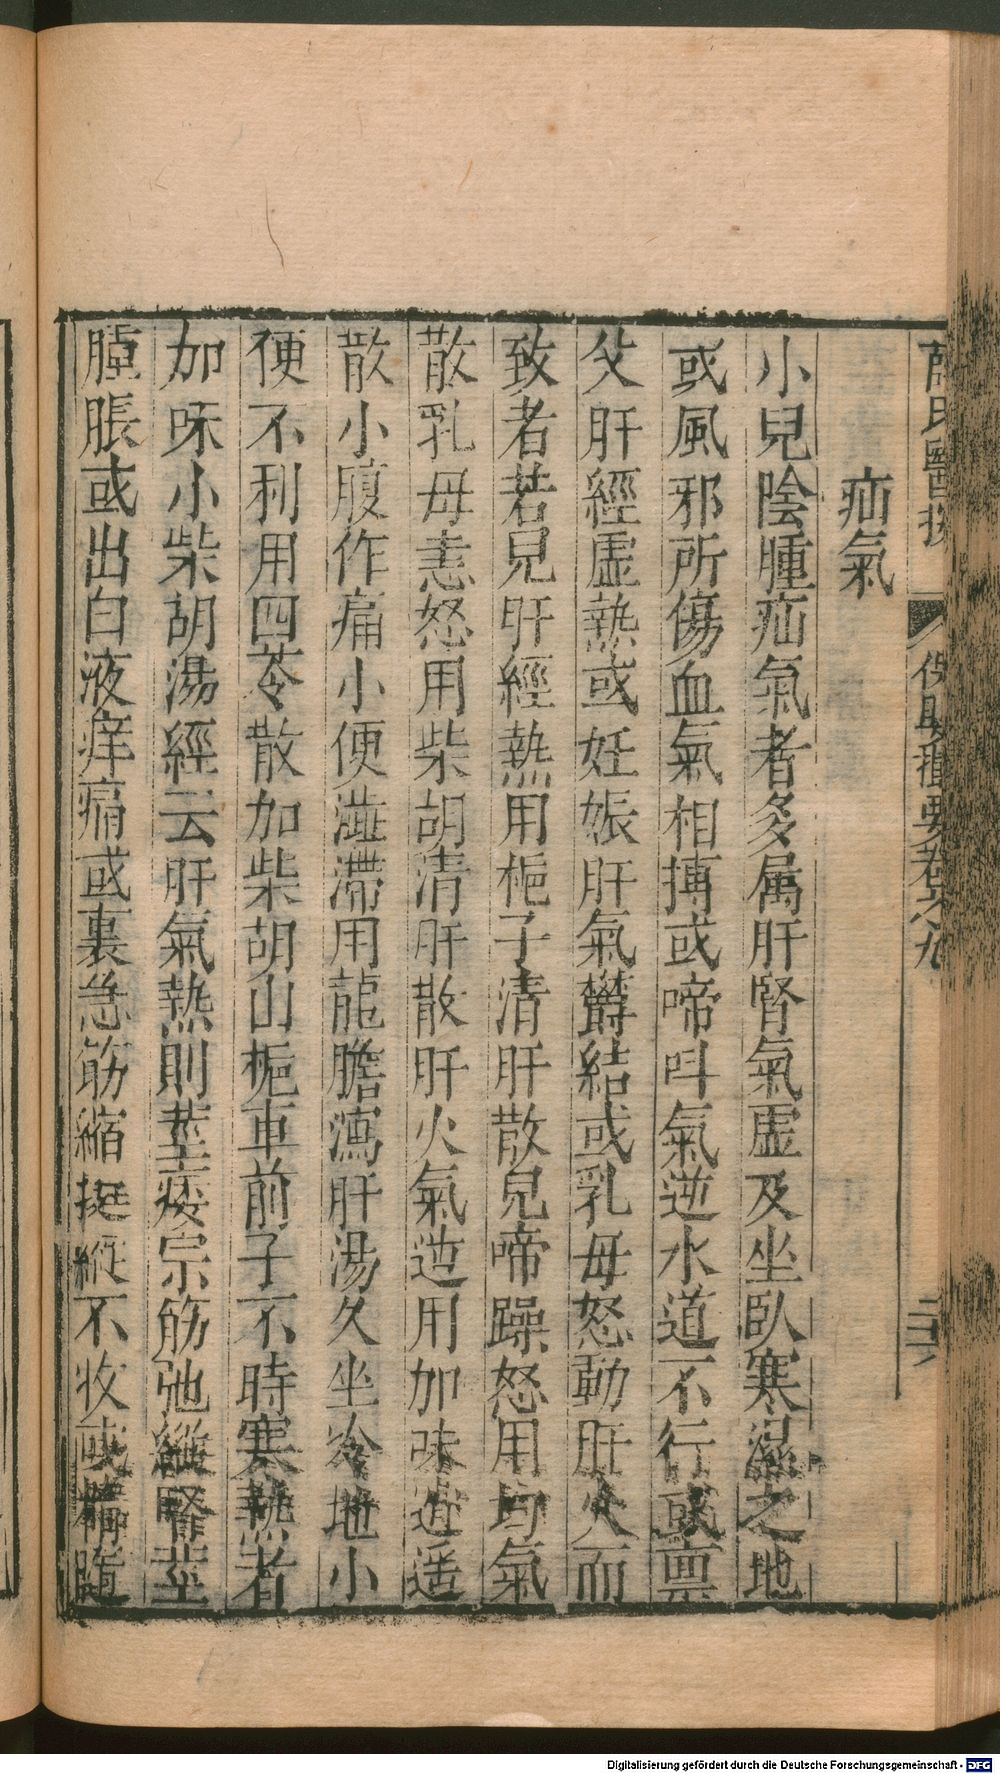 薛氏醫按 保嬰撮要卷九 二六
疝氣
小兒陰腫疝氣者多属肝腎氣虛及坐臥寒濕之地
或風邪所傷血氣相搏或啼呌氣逆水道不行或禀
父肝經虛熱或妊娠肝氣欝結或乳母怒動肝火而
致者若兒肝經熱用栀子清肝散兒啼躁怒用均氣
散乳母恚怒用柴胡清肝散肝火氣逆用加味逍遥
散小腹作痛小便澁滯用龍膽瀉肝湯久坐冷地小
便不利用四苓散加柴胡山栀車前子不時寒熱者
加味小柴胡湯經云肝氣熱則莖痿宗筋弛縱腎莖
腫脹或出白液痒痛或裏急筋縮挺縱不收或精隨
Digitalisierung gefördert durch die Deutsche Forschungsgemeinschaft - DFG